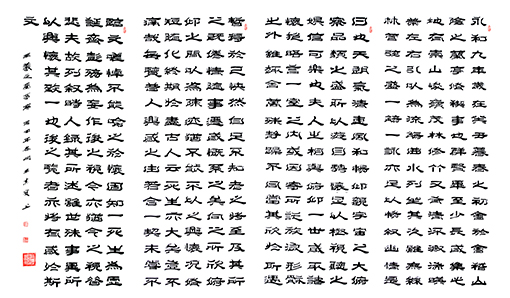 永和九年歲在癸丑暮春之初會於會稽山
陰之蘭亭修禊事也羣賢畢至少長咸集此
地有崇山峻領茂林修竹又有清流激湍映
帶左右引以為流觴曲水列坐其次雖無絲
竹管弦之盛一觴一詠亦足以暢敘幽情是
日也天朗氣清惠風和暢仰觀宇宙之大俯
察品類之盛所以遊目騁懷足以極視聽之
娛信可樂也夫人之相與俯仰一世或取諸
懷抱悟言一室之內或因寄所託放浪形骸
之外雖趣舍萬殊靜躁不同當其欣於所遇
暫得於己快然自足不知老之將至及其所
之既倦情隨事遷感慨係之矣向之所欣俛
仰之間以為陳跡猶不能不以之興懷況修
短隨化終期於盡古人云死生亦大矣豈不
痛哉每覽昔人興感之由若合一契未嘗不
臨文嗟悼不能喻之於懷固知一死生為虛
誕齊彭殤為妄作後之視今亦猶今之視昔
悲夫故列敘時人錄其所述雖世殊事異所
以興懷其致一也後之覽者亦將有感於斯
文
王羲之蘭亭序